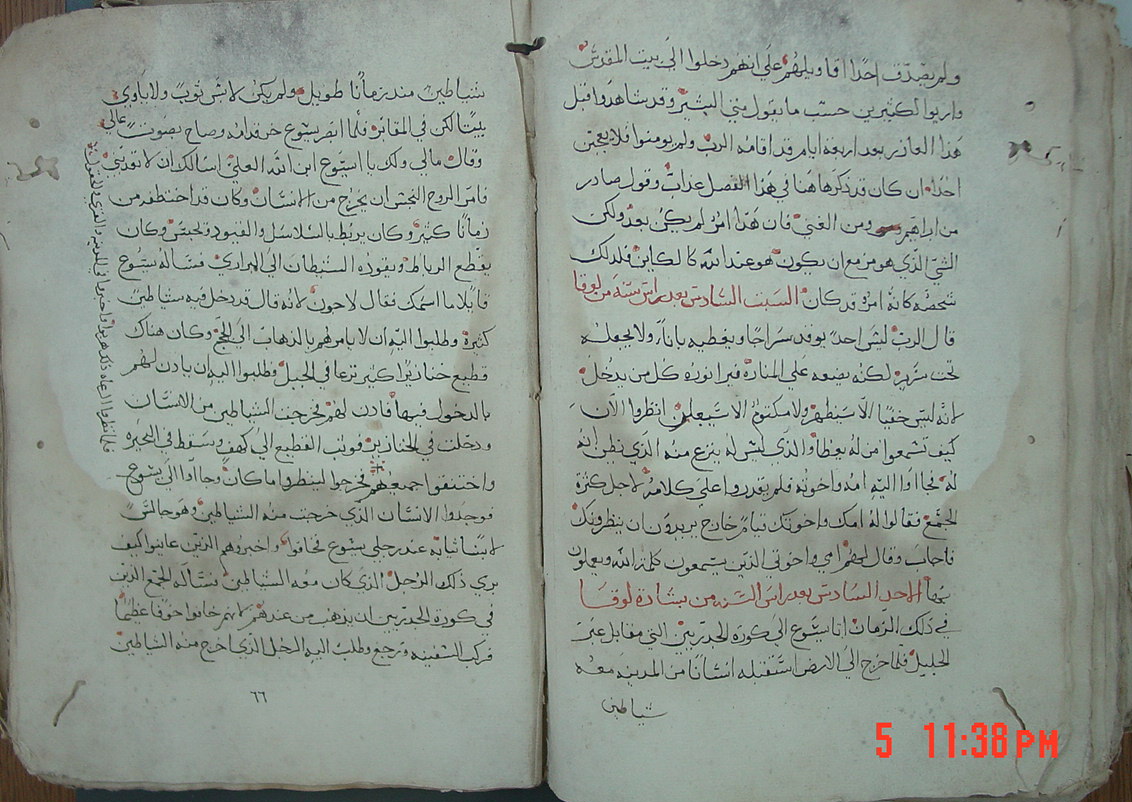 ولم يصدق احدا اقاويلهم علي انهم دخلوا الي بيت المقدس
واريوا لكثيرين حسب ما يقول متي البشير وقد شاهدوا قبل
هذا العازر بعد اربعة ايام قد اقامه الرب ولم يومنوا فلا يعجبن
احدا ان كان قد ذكرها هنا في هذا الفصل عذاب وقول صادر
من ابراهيم ومن الغني فان هذا امر لم يكن بعد ولكن
الشي الذي هو مزمع ان يكون هو عند الله كالكاين فلذلك
شخصه كانه امر وقد كان السبت السادس بعد راس سنة من لوقا
قال الرب ليس احد يوقد سراجا ويغطيه باناء ولا يجعله
تحت سرير لكنه يضعه علي المنارة فيرا نوره كل من يدخل
لانه ليس خفيا الا سيظهر ولا مكتوم الا سيعلن انظروا الان
كيف تسمعوا من له يعطا والذي ليس له ينزع منه الذي يظن انه
له فجااوا اليه امه واخوته فلم يقدروا علي كلامه لاجل كثرة
الجمع فقالوا له امك واخوتك قيام خارج يريدون ان ينظرونك
فاجاب وقال لهم امي واخوتي الذين يسمعون كلام الله ويعملون
بها الاحد السادس بعد راس السنه من بشارة لوقا
في ذلك الزمان اتا يسوع الي كورة الجدريين التي مقابل عبر
الجليل فلما خرج الي الارض استقبله انسانا من المدينه معه
شياطين
شياطين مند زمانا طويل ولم يكن لابس ثوب ولا ياوي
بيتا لكن في المقابر فلما ابصر يسوع خر قدامه وصاح بصوت عالي
وقال مالي ولك يا يسوع ابن الله العلي اسالك ان لا تعذبني
فامر الروح النجس ان يخرج من الانسان وكان قد اختطفه من
زمانا كثير وكان يربط بالسلاسل والقيود ويحبس وكان
يقطع الرباط ويقوده الشيطان الي البراري فساله يسوع
قايلا ما اسمك فقال لاجون لانه قال قد دخل فيه شياطين
كثيرة وطلبوا اليه ان لا يامرهم بالذهاب الي اللجج وكان هناك
قطيع خنازير كثير ترعا في الجبل وطلبوا اليه ان يادن لهم
بالدخول فيها فادن لهم فخرجت الشياطين من الانسان
ودخلت في الخنازير فوثب القطيع الي كهف وسقط في البحيره
واختنقوا جميعهم فخرجوا لينظروا ما كان وجااوا الي يسوع
فوجدوا الانسان الذي خرجت منه الشياطين وهو جالس
لابسا ثيابه عند رجلي يسوع فخافوا واخبروهم الذين عاينوا كيف
بري ذلك الرجل الذي كان معه الشياطين فساله الجمع الذين
في كورة الجدريين ان يذهب من عندهم لانهم خافوا خوفا عظيما
فركب السفينه ورجع وطلب اليه الرجل الذي اخرج منه الشياطين
٦٦
فلما نظروا الرعاه ذلك هربوا واخبروا في المدينه والقري والحقول
5 11:38 PM